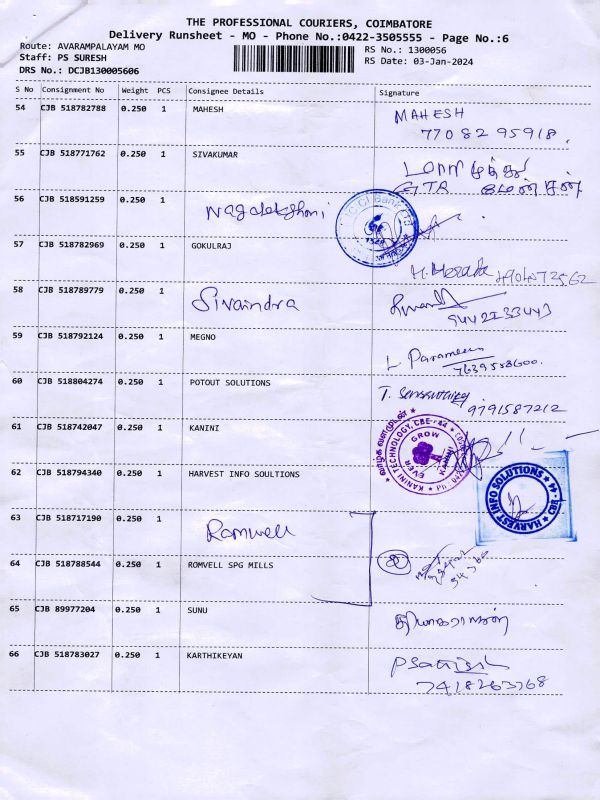 THE PROFESSIONAL COURIERS, COIMBATORE
Delivery Runsheet - MO - Phone No.:0422-3505555 - Page No.:6
Route: AVARAMPALAYAM MO
RS No.: 1300056
Staff: PS SURESH
RS Date: 03-Jan-2024
DRS No.: DCJB130005606
S No Consignment No Weight PCS Consignee Details Signature
54 CJB 518782788 0.250 1 MAHESH MAHESH
77082 95918.
55 CJB 518771762 0.250 1 SIVAKUMAR
56 CJB 518591259 0.250 1
57 CJB 518782969 0.250 1 GOKULRAJ
58 CJB 518789779 0.250 1 Sivaindra
9442133443
59 CJB 518792124 0.250 1 MEGNO
L Parames
7639558600.
60 CJB 518804274 0.250 1 POTOUT SOLUTIONS
9791587212
61 CJB 518742047 0.250 1 KANINI
KANINI TECHNOLOGY, CBE-44
EVER GROW KANINI
62 CJB 518794340 0.250 1 HARVEST INFO SOULTIONS
HARVEST INFO SOLUTIONS CBE-44
63 CJB 518717190 0.250 1 Romwell
64 CJB 518788544 0.250 1 ROMVELL SPG MILLS
65 CJB 89977204 0.250 1 SUNU
66 CJB 518783027 0.250 1 KARTHIKEYAN PSatish
7418263768